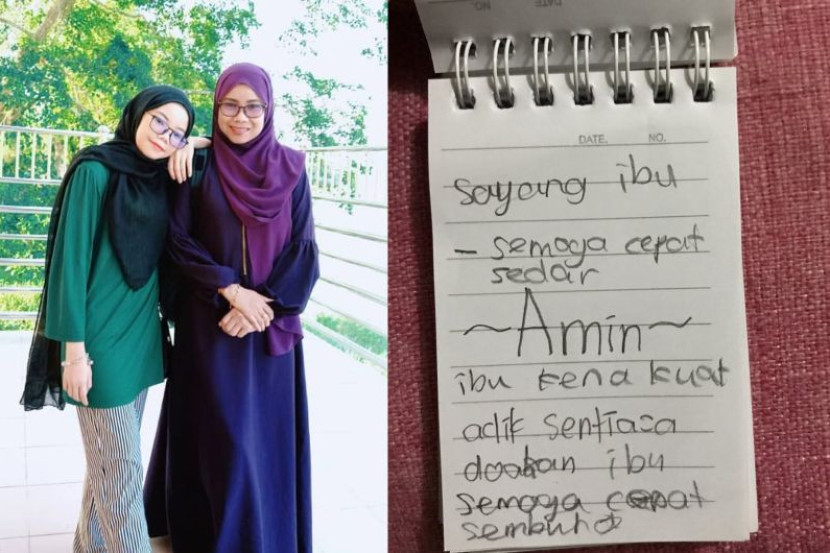 NO.
DATE
DATE.
NO.
sayang ibu
- semoga cepat
sedar
~Amin~
ibu kena kuat
adik sentiasa
doakan ibu
semoga cepat
sembuh